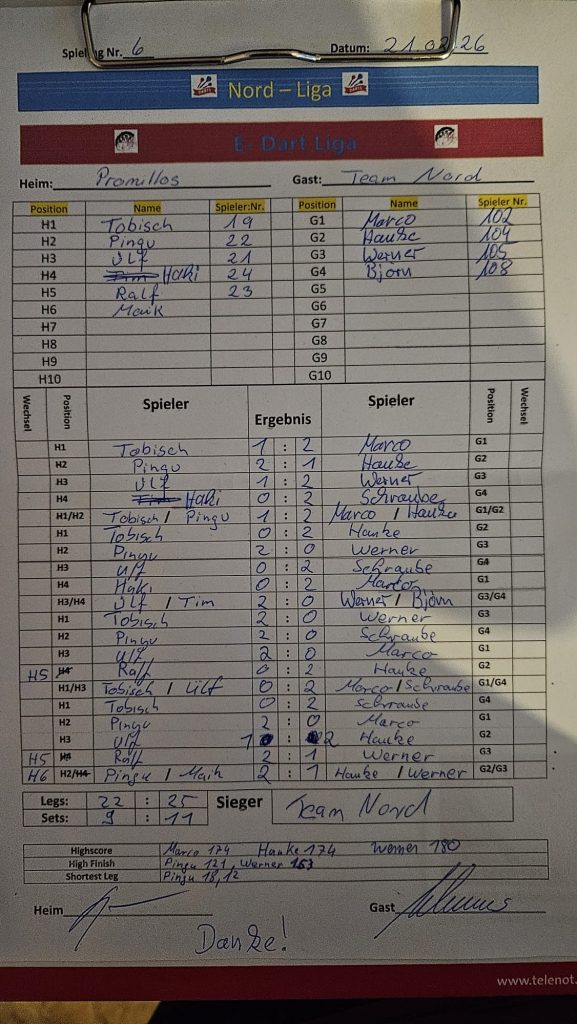 Spieltag Nr. 6 Datum: 21.02.26
Nord – Liga
E- Dart Liga
Heim: Promillos Gast: Team Nord
Position Name Spieler:Nr. Position Name Spieler Nr.
H1 Tobisch 19 G1 Marco 102
H2 Pingu 22 G2 Hauke 104
H3 Ulf 21 G3 Werner 105
H4 Tim Haki 24 G4 Björn 108
H5 Ralf 23 G5
H6 Maik G6
H7 G7
H8 G8
H9 G9
H10 G10
Wechsel Position Spieler Ergebnis Spieler Position Wechsel
H1 Tobisch 1 : 2 Marco G1
H2 Pingu 2 : 1 Hauke G2
H3 Ulf 1 : 2 Werner G3
H4 Tim Haki 0 : 2 Schraube G4
H1/H2 Tobisch / Pingu 1 : 2 Marco / Hauke G1/G2
H1 Tobisch 0 : 2 Hauke G2
H2 Pingu 2 : 0 Werner G3
H3 Ulf 0 : 2 Schraube G4
H4 Haki 0 : 2 Marco G1
H3/H4 Ulf / Tim 2 : 0 Werner / Björn G3/G4
H1 Tobisch 2 : 0 Werner G3
H2 Pingu 2 : 0 Schraube G4
H3 Ulf 2 : 0 Marco G1
H5 H4 Ralf 0 : 2 Hauke G2
H1/H3 Tobisch / Ulf 0 : 2 Marco / Schraube G1/G4
H1 Tobisch 0 : 2 Schraube G4
H2 Pingu 2 : 0 Marco G1
H3 Ulf 1 : 2 Hauke G2
H5 H4 Ralf 2 : 1 Werner G3
H6 H2/H4 Pingu / Maik 2 : 1 Hauke / Werner G2/G3
Legs: 22 : 25 Sieger Team Nord
Sets: 9 : 11
Highscore Marco 174 Hauke 174 Werner 180
High Finish Pingu 121, Werner 153
Shortest Leg Pingu 18, 12
Heim Gast
Danke!
www.telenot.